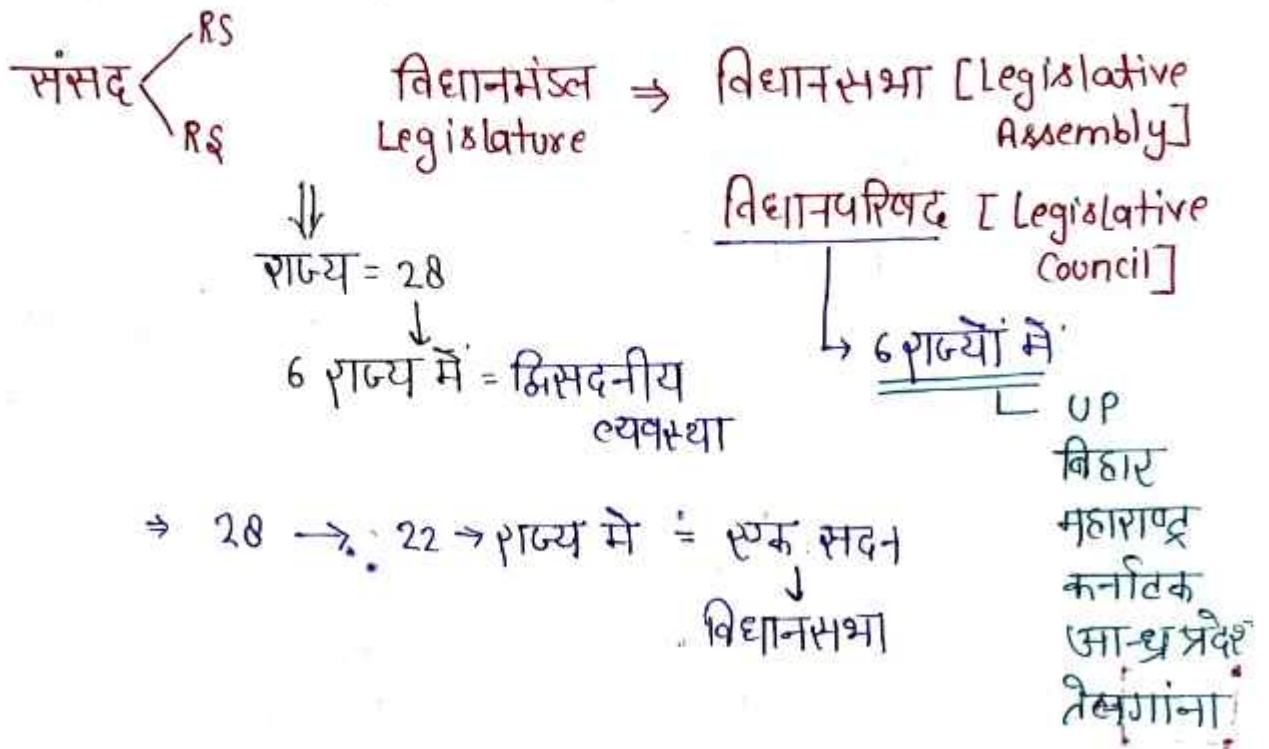 संसद
RS
RS
विधानमंडल ⇒ विधानसभा [Legislative
Legislature
Assembly]
विधानपरिषद [Legislative
Council]
राज्य = 28
6 राज्य में = द्विसदनीय
व्यवस्था
→ 6 राज्यों में
UP
बिहार
महाराष्ट्र
कर्नाटक
आन्ध्र प्रदेश
तेलंगांना
⇒ 28 → 22 → राज्य मे = एक सदन
विधानसभा